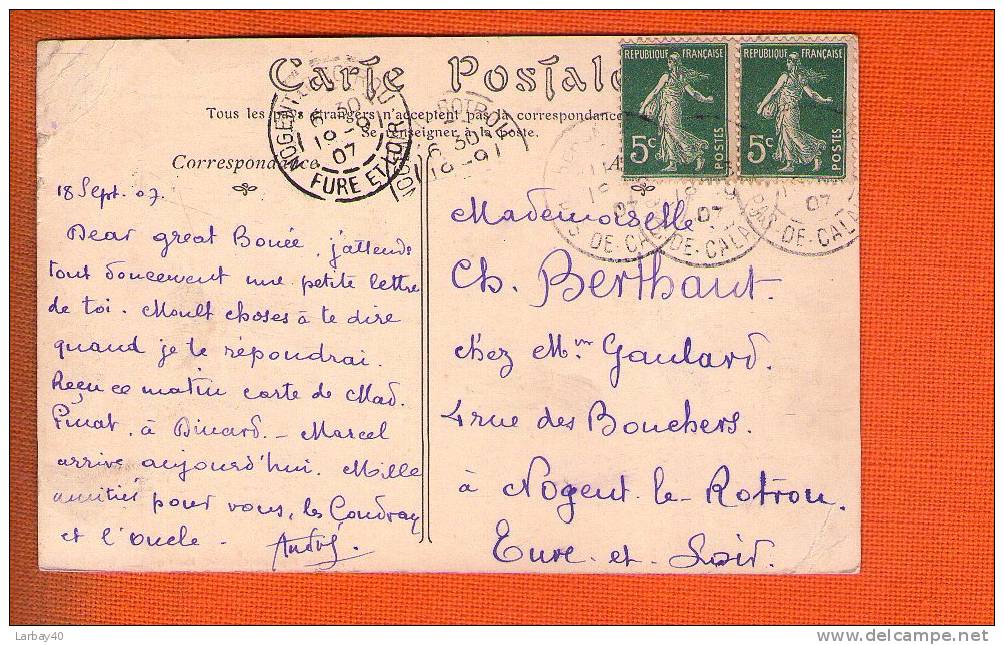 Carte Postale
Tous les pays étrangers n'acceptent pas la correspondance
Se renseigner à la poste.
Correspondance
REPUBLIQUE FRANÇAISE
5c
POSTES
REPUBLIQUE FRANÇAISE
5c
POSTES
6 30
19-9
07
EURE ET LOIR
6 30
07
DE-CALA
07
DE-CALA
18 Sept. 07.
Dear great Bonée, j'attends
tout doucement une petite lettre
de toi. Moult choses à te dire
quand je te répondrai.
Reçu ce matin carte de Mad.
Pinat, à Dinard. - Marcel
arrive aujourd'hui. Mille
amitiés pour vous, les Coudray
et l'oncle. André.
Mademoiselle
Ch. Berthaut.
chez Mme Gaulard.
4 rue des Bouchers.
à Nogent-le-Rotrou.
Eure-et-Loir.
Larbay40
www.delcampe.net